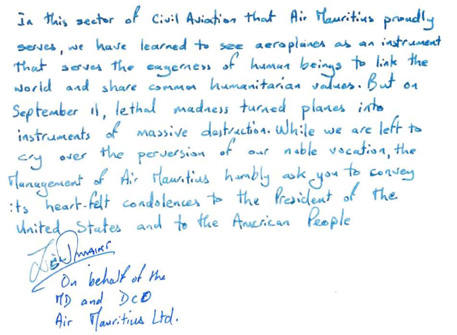 In this sector of Civil Aviation that Air Mauritius proudly
serves, we have learned to see aeroplanes as an instrument
that serves the eagerness of human beings to link the
world and share common humanitarian values. But on
September 11, lethal madness turned planes into
instruments of massive destruction. While we are left to
cry over the perversion of our noble vocation, the
Management of Air Mauritius humbly ask you to convey
its heart-felt condolences to the President of the
United States and to the American People
On behalf of the
MD and DCO
Air Mauritius Ltd.